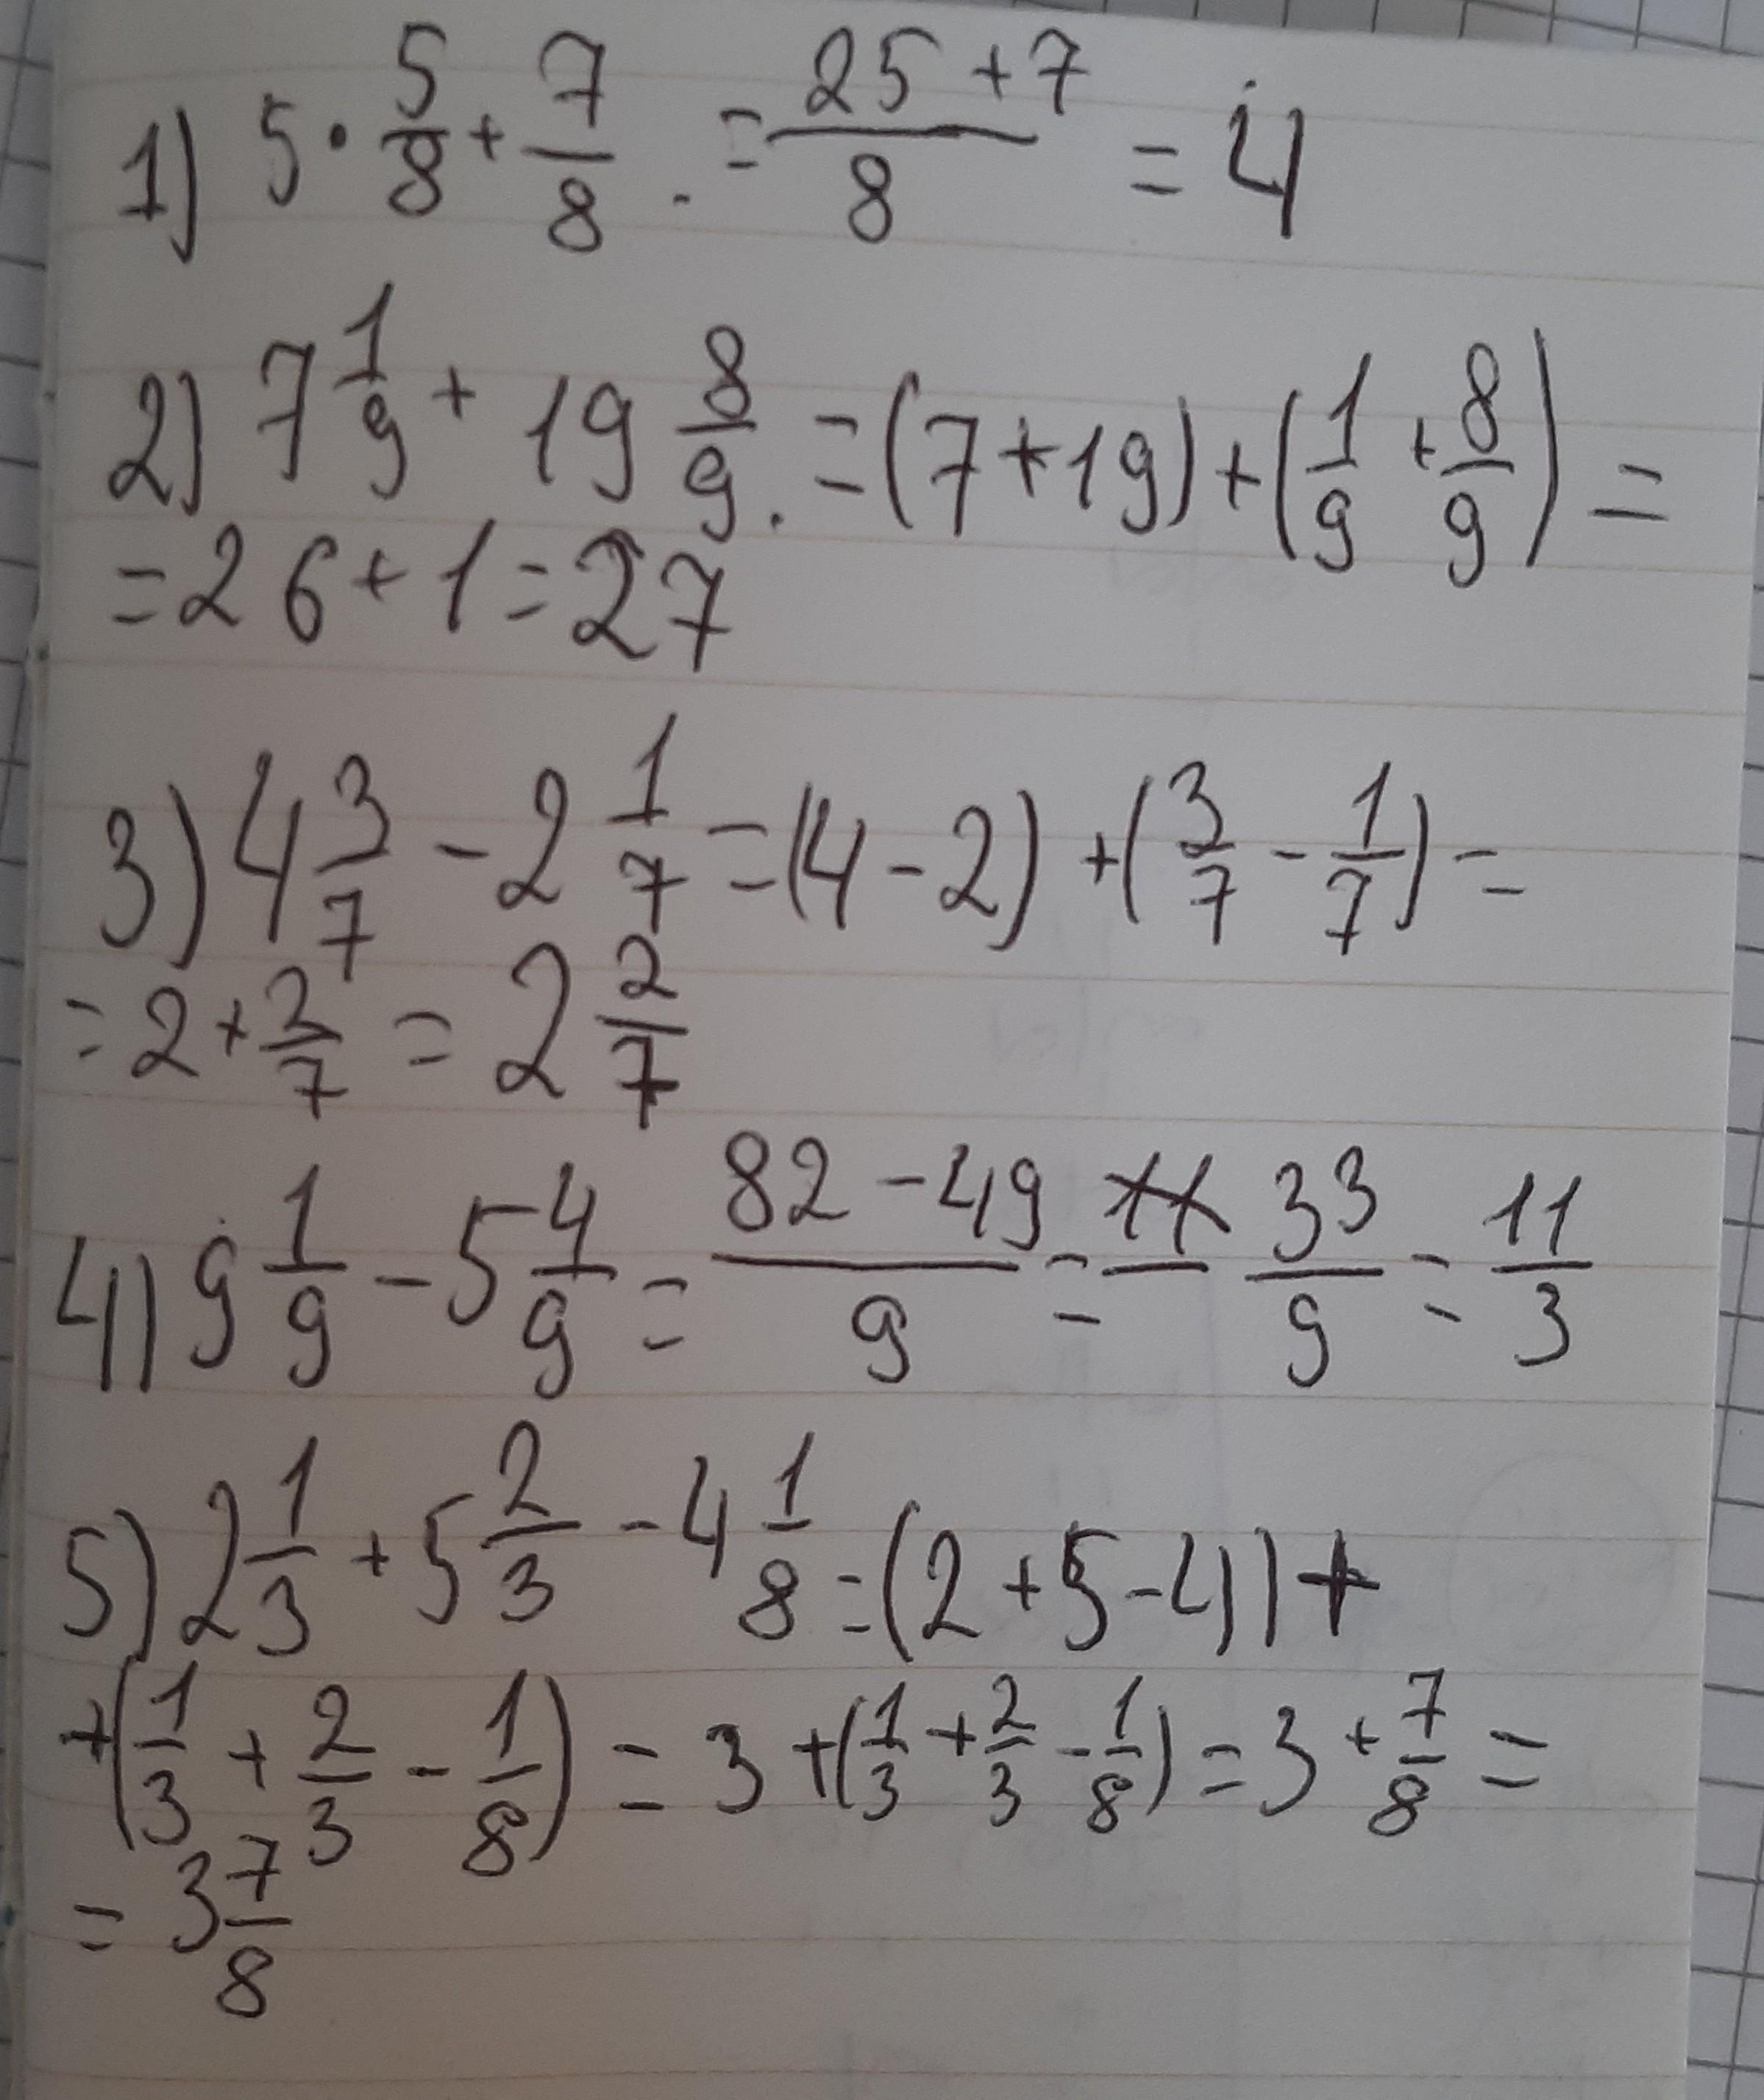 1) 5 · 5/8 + 7/8 = (25 + 7)/8 = 4
2) 7 1/9 + 19 8/9 = (7 + 19) + (1/9 + 8/9) =
= 26 + 1 = 27
3) 4 3/7 - 2 1/7 = (4 - 2) + (3/7 - 1/7) =
= 2 + 2/7 = 2 2/7
4) 9 1/9 - 5 4/9 = (82 - 49)/9 = 33/9 = 11/3
5) 2 1/3 + 5 2/3 - 4 1/8 = (2 + 5 - 4) +
+ (1/3 + 2/3 - 1/8) = 3 + (1/3 + 2/3 - 1/8) = 3 + 7/8 =
= 3 7/8